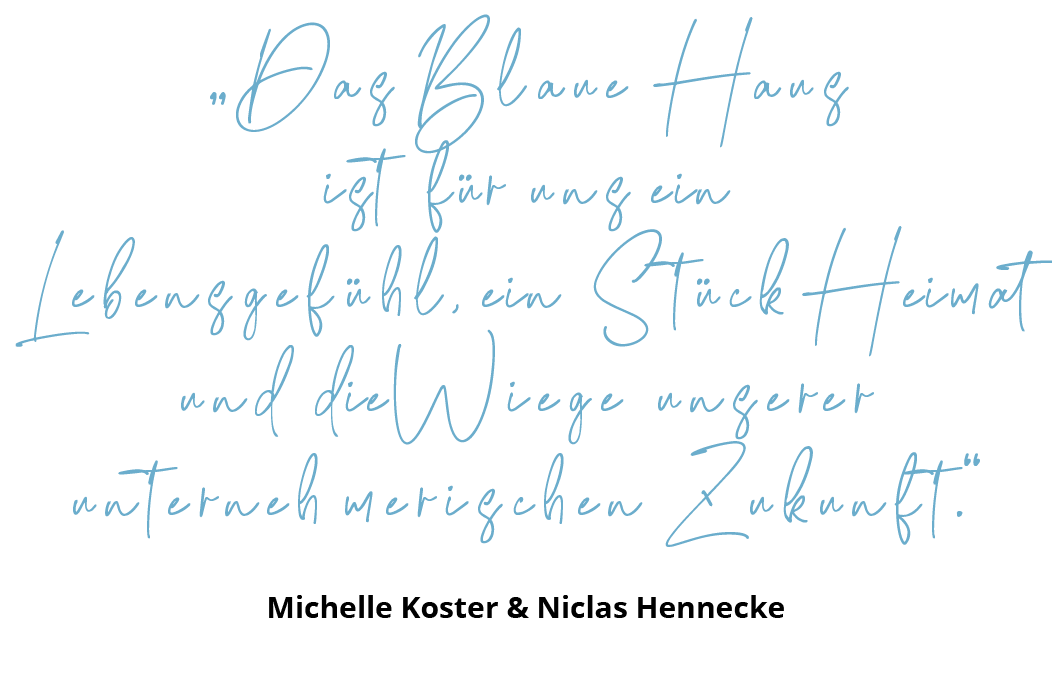 „Das Blaue Haus
ist für uns ein
Lebensgefühl, ein Stück Heimat
und die Wiege unserer
unternehmerischen Zukunft.“
Michelle Koster & Niclas Hennecke